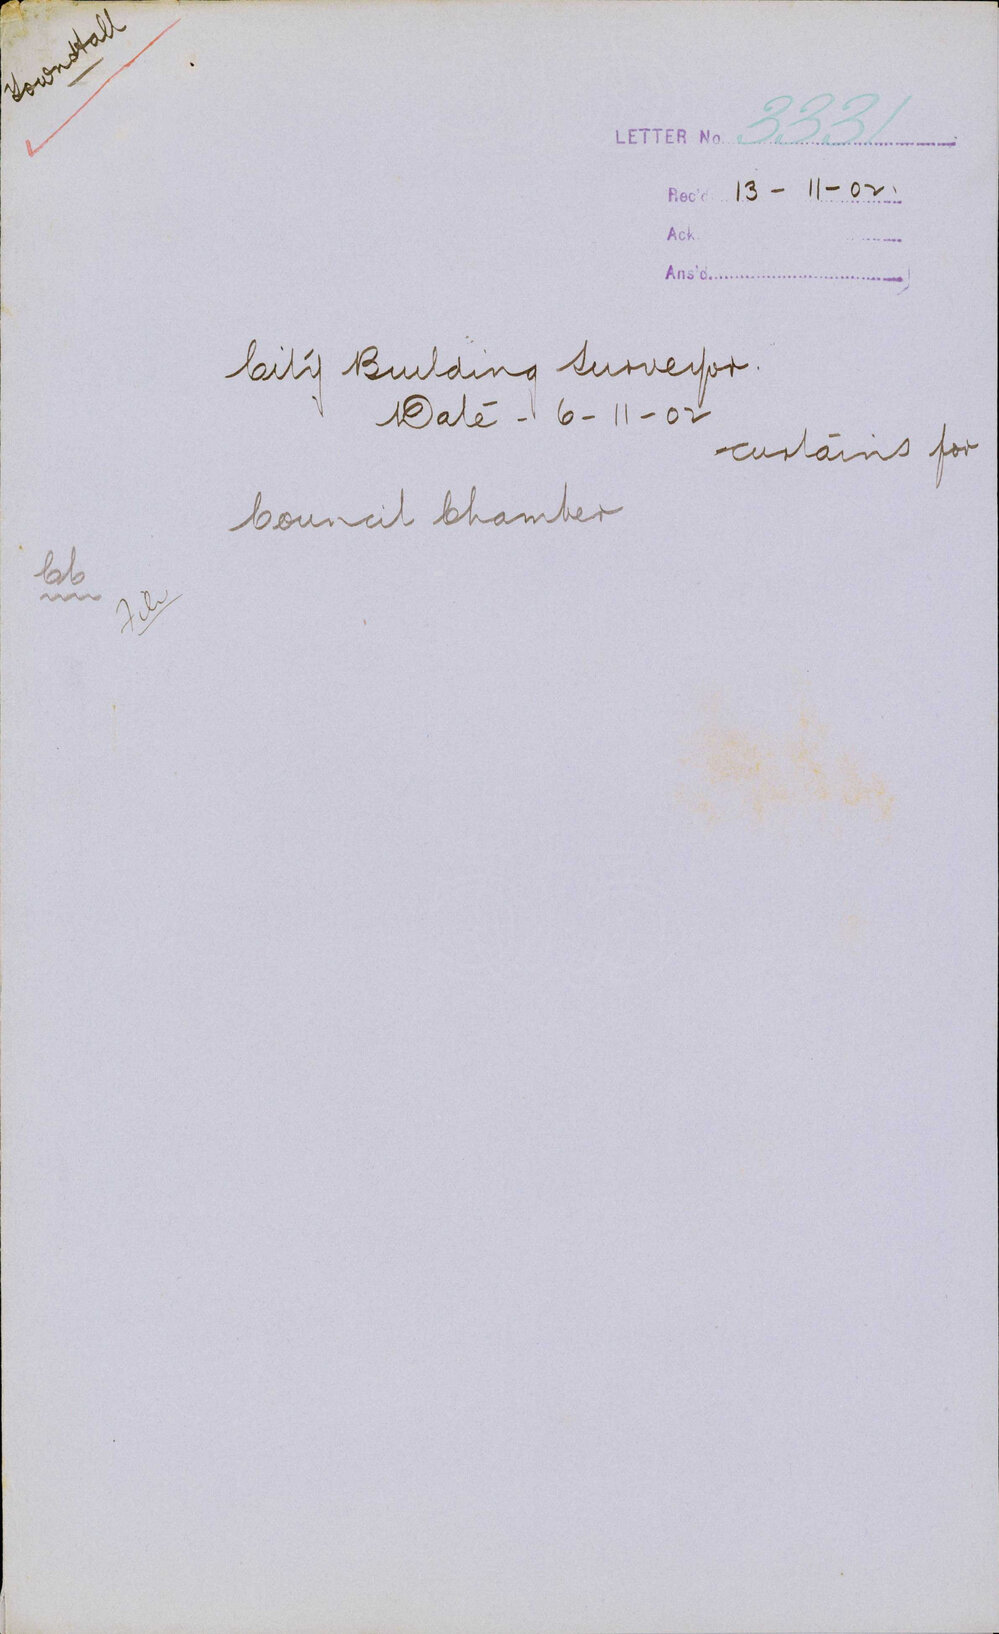 Town Hall
LETTER No. 3331
Rec'd 13 - 11 - 02.
Ack.
Ans'd.
City Building Surveyor.
Date - 6 - 11 - 02
curtains for
Council Chamber
File